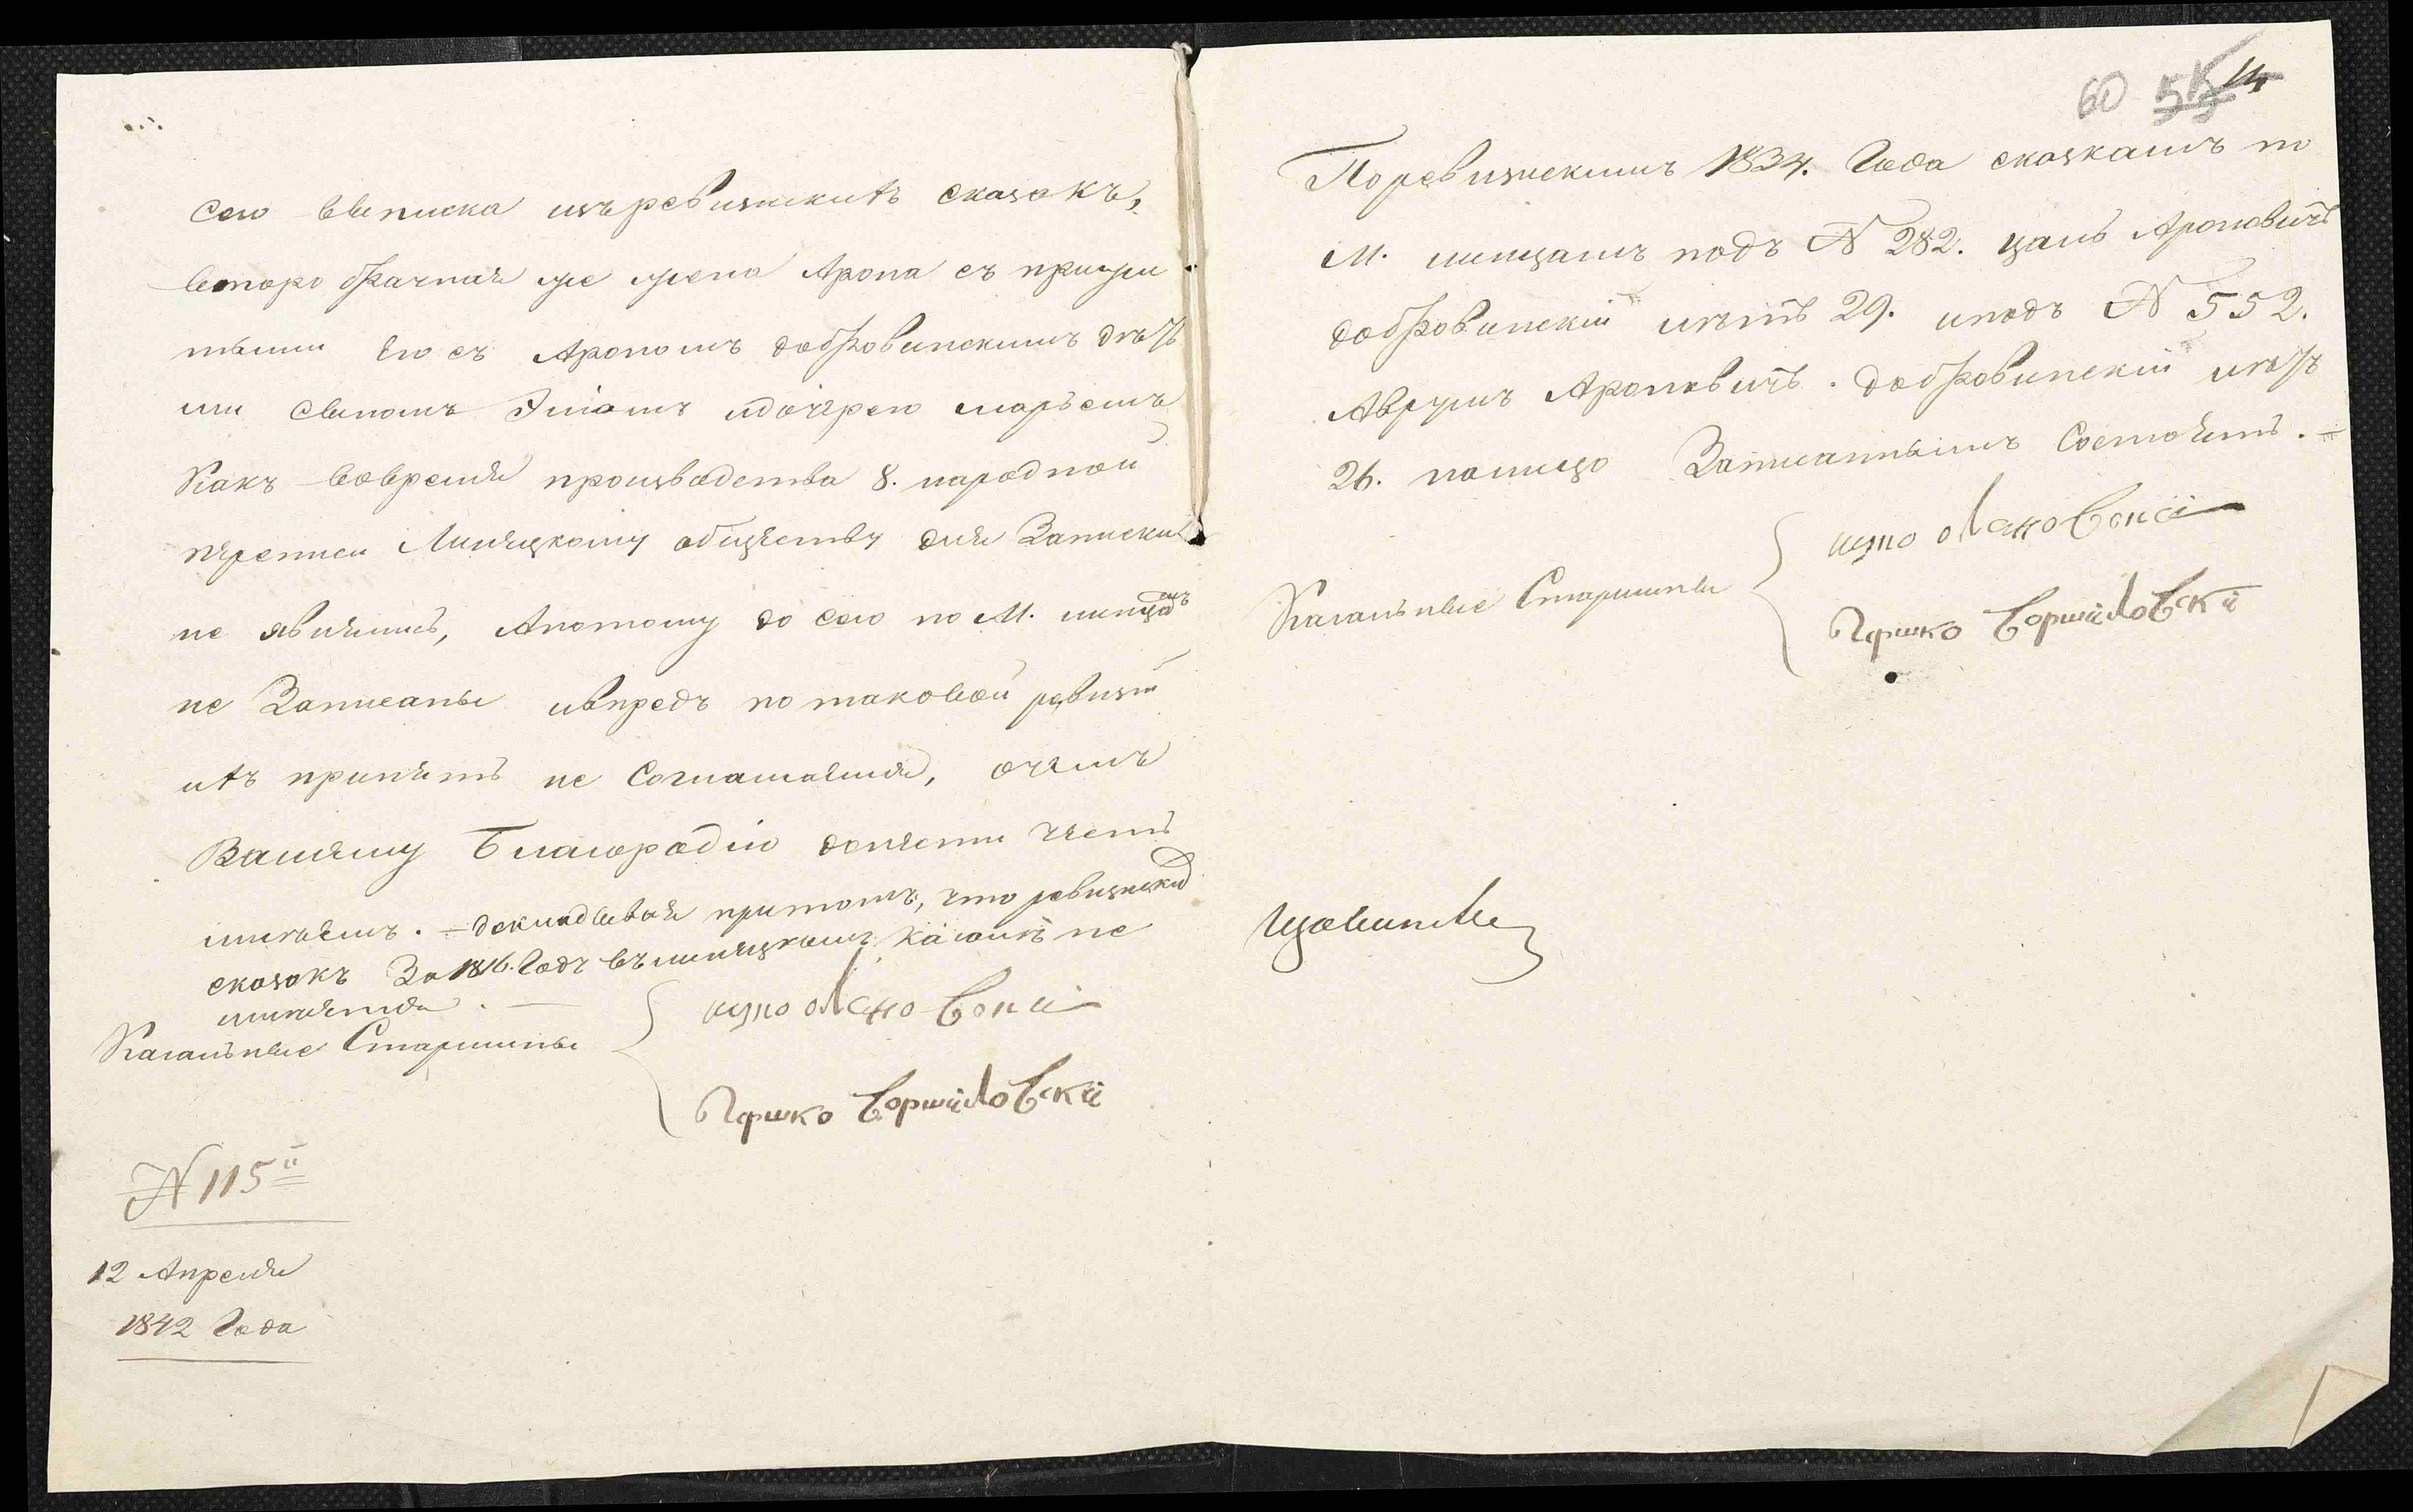 сего выписка изъ ревизскихъ сказокъ,
второ брачная же жена Арона съ прижи
тыми его съ Арономъ Добровинскимъ деть
ми сыномъ и дочерею Марьемъ
Какъ вовремя производства 8. народной
переписи Липецкому обществу для Записки
не явились, Апотому до сего по М. липцамъ
не Записаны ивпредь по таковой ревизіи
ихъ принять не Соглашаемся, очемъ
Вашему Благородію донести честь
имѣемъ. – докладывая притомъ, что ревизскихъ
сказокъ За 1816. Годъ въ липецкомъ кагалѣ не
имѣется. –
Кагальные Старшины
Гершко
N 115й
12 Апреля
1842 Года
60 55 14
Поревизскимъ 1834. Года сказкамъ по
М. липцамъ подъ N 282. Цаль Ароновичъ
Добровинскій лѣтъ 29. иподъ N 552.
Аврумъ Ароновичъ. Добровинскій лѣтъ
26. налицо Записаннымъ Состоитъ. –
Кагальные Старшины
Гершко